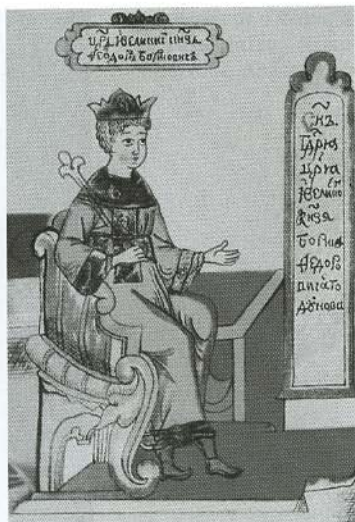 црь ивеликі кнзь
ѳеодоръ борисовичъ
Снъ
Гдря
Цря
ивелико
кнзя
бориса
ѳедоро
вичаго
дунова